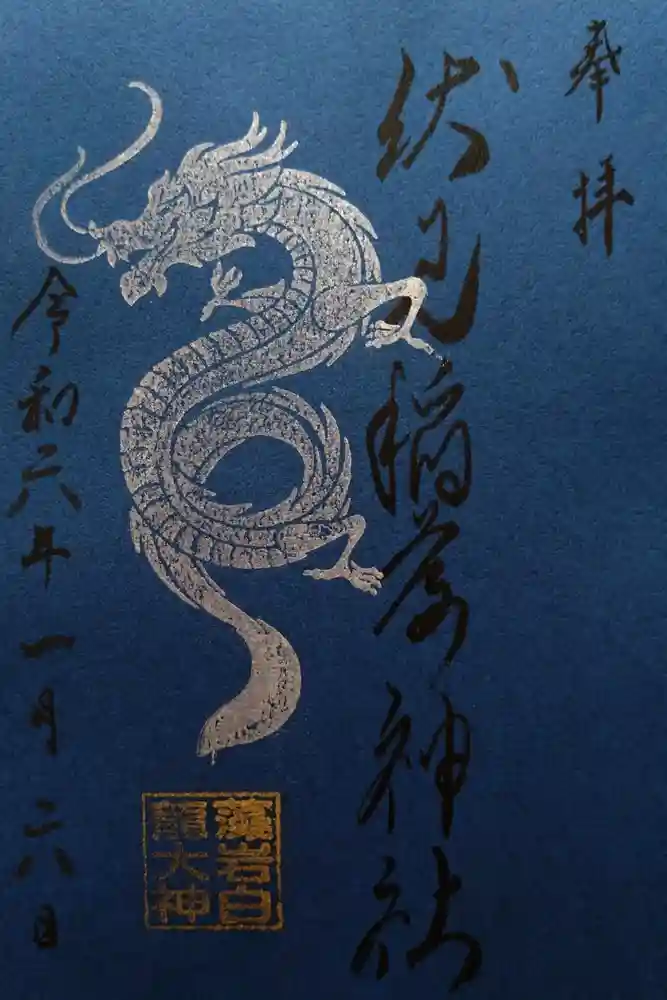 奉拝
伏見稲荷神社
藻岩白
龍大神
令和六年一月二六日